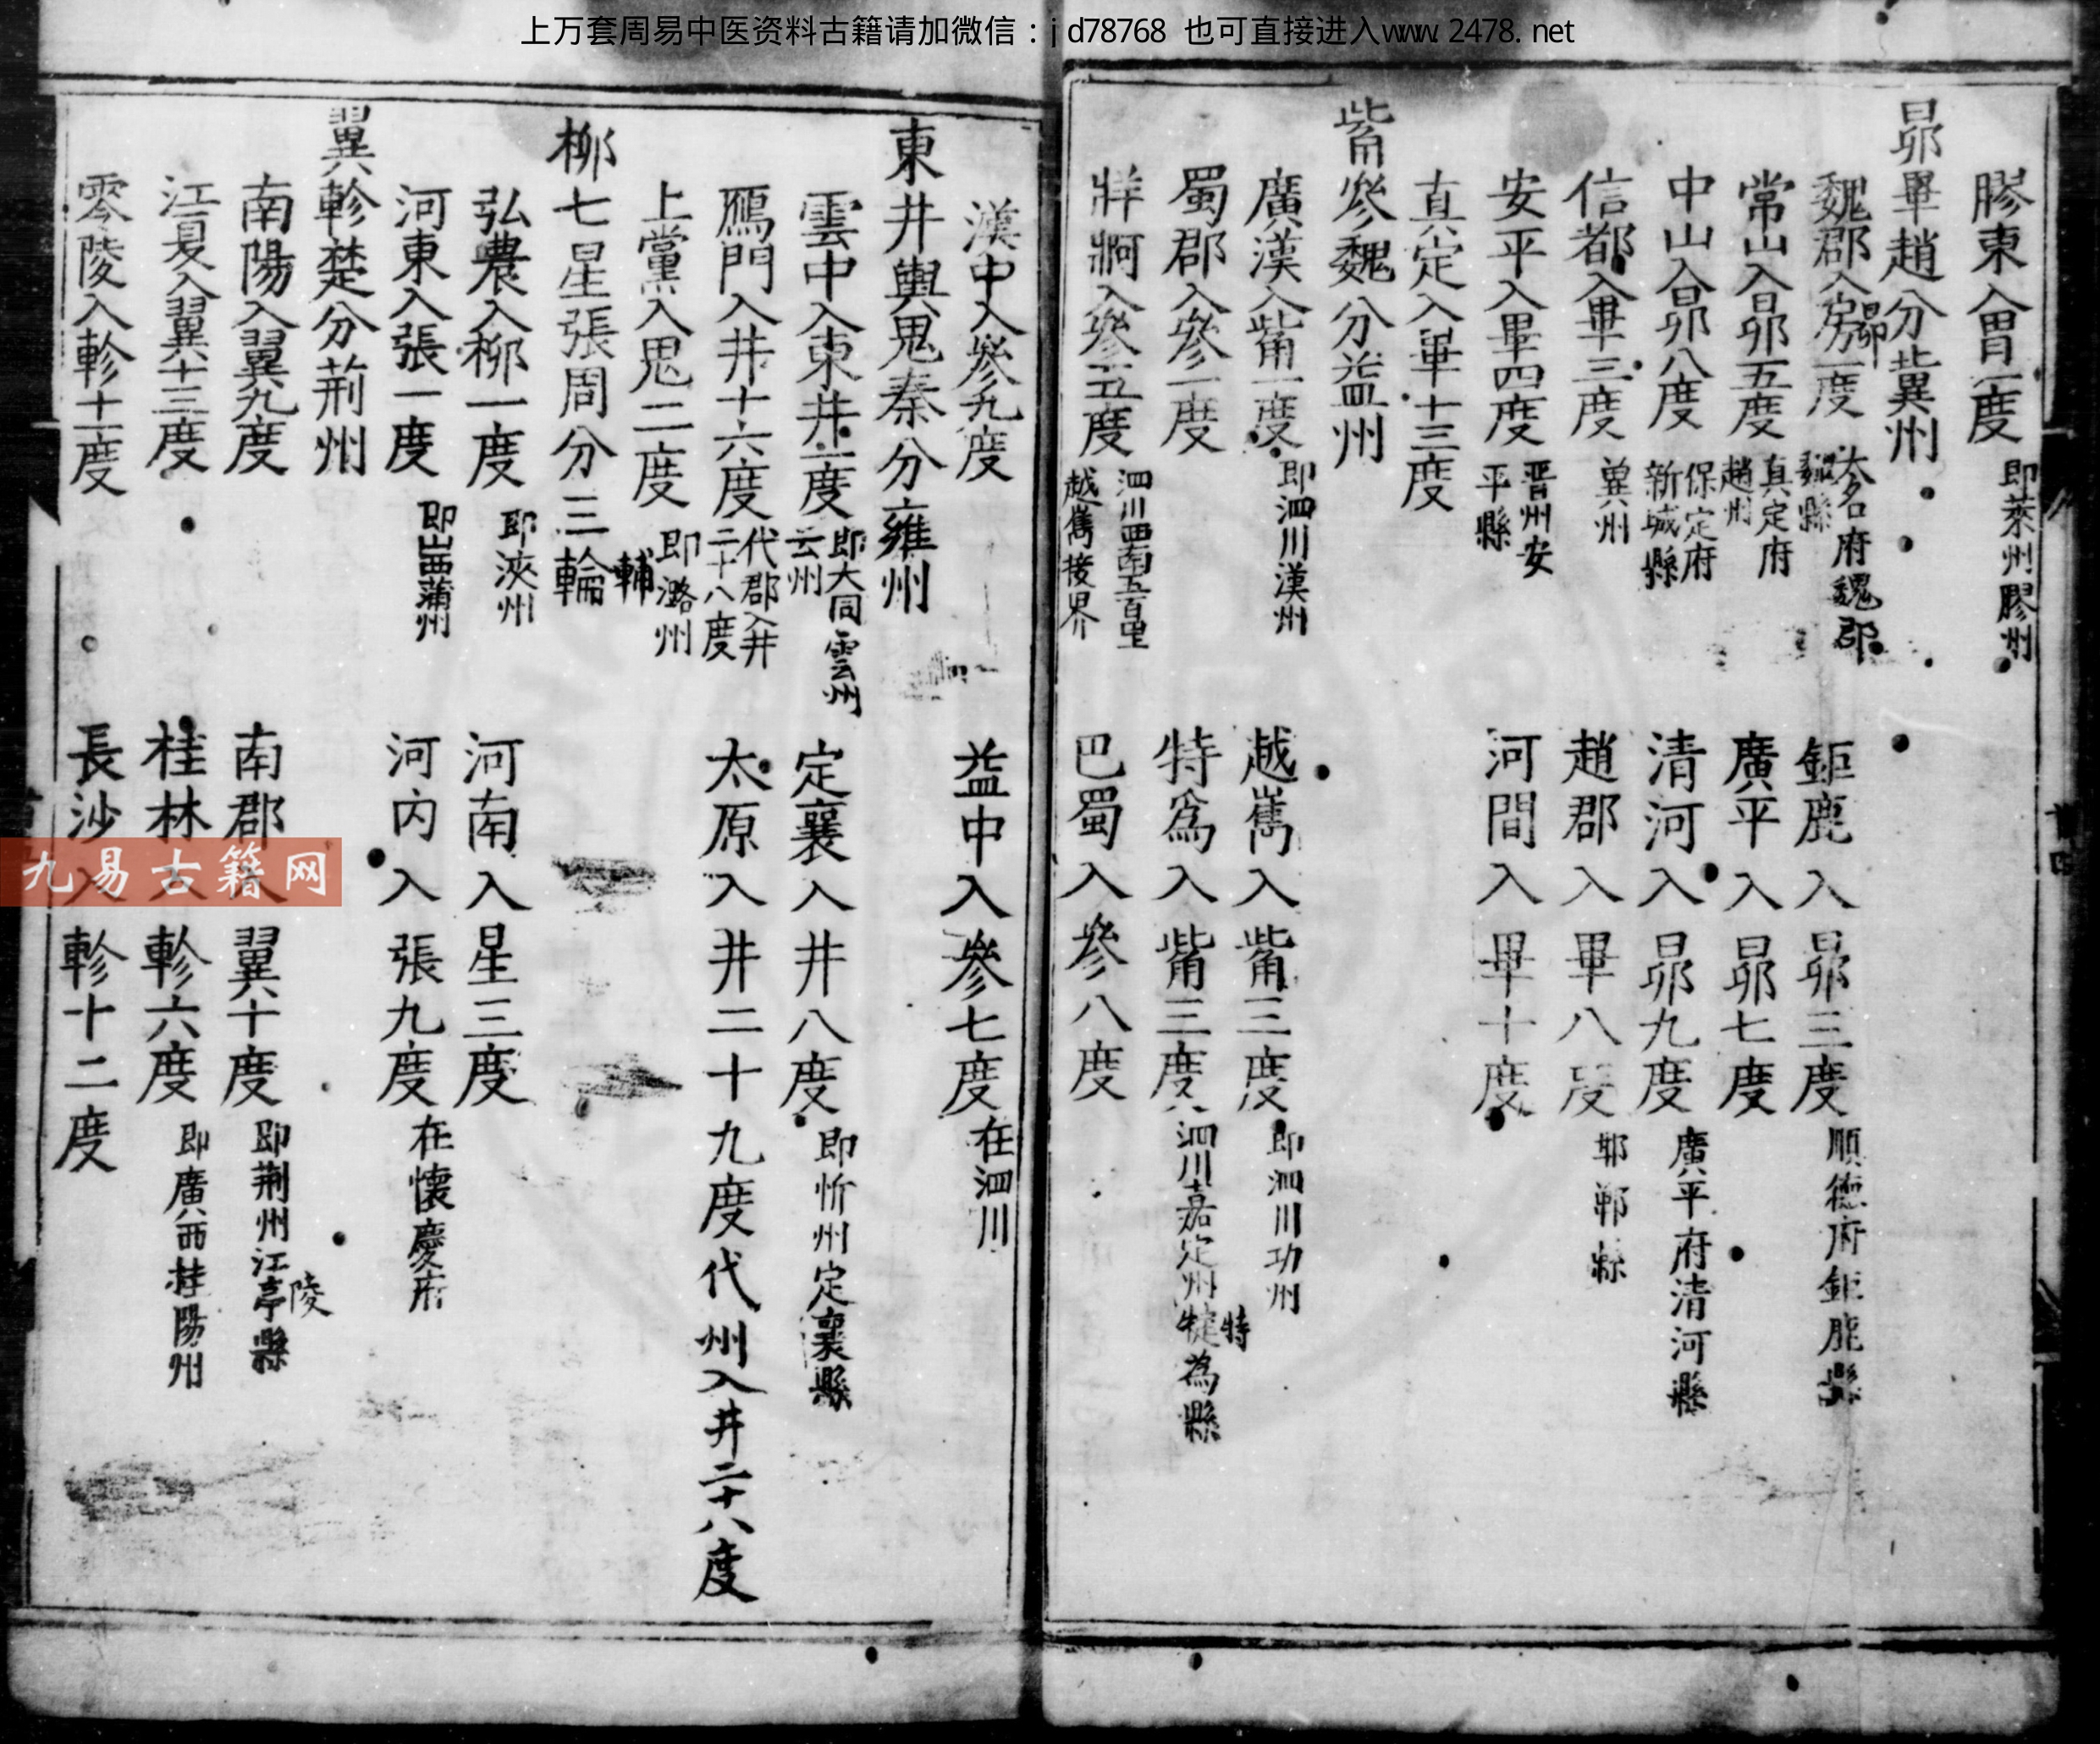 上万套周易中医资料古籍请加微信：jd78768 也可直接进入www.2478.net
膠東入胃一度 即萊州膠州
昴畢趙分冀州
魏郡入昴一度 大名府魏郡 魏縣 鉅鹿入昴三度 順德府鉅鹿縣
常山入昴五度 真定府 趙州 廣平入昴七度
中山入昴八度 保定府 新城縣 清河入昴九度 廣平府清河縣
信都入畢三度 冀州 趙郡入畢八度 邯鄲縣
安平入畢四度 晋州安 平縣 河間入畢十度
真定入畢十三度
觜參魏分益州
廣漢入觜一度 即泗川漢州 越嶲入觜三度 即泗川功州
蜀郡入參一度 特為入觜三度 泗川嘉定州犍為縣 特
牂牁入參五度 泗川西南五百里 越嶲接界 巴蜀入參八度
漢中入參九度 益中入參七度 在泗川
東井輿鬼秦分雍州
雲中入東井一度 即大同雲州 云州 定襄入井八度 即忻州定襄縣
鴈門入井十六度 代郡入井 二十八度 太原入井二十九度代州入井二十八度
上黨入鬼二度 即潞州
柳七星張周分三輪 輔
弘農入柳一度 即浹州 河南入星三度
河東入張一度 即山西蒲州 河内入張九度 在懷慶府
翼軫楚分荊州
南陽入翼九度 南郡入翼十度 即荊州江亭縣 陵
江夏入翼十三度 桂林入軫六度 即廣西桂陽州
零陵入軫十一度 長沙入軫十二度
九易古籍网